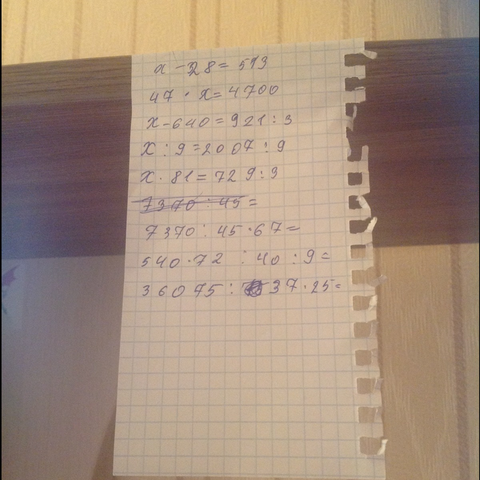 a - 28 = 513
47 · x = 4700
x - 640 = 921 : 3
x : 9 = 2007 : 9
x · 81 = 729 : 3
7370 : 45 =
7370 : 45 · 67 =
540 · 72 : 40 : 9 =
36075 : 37 · 25 =